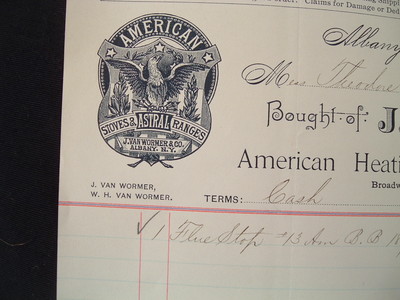 Claims for Damage or Ded
Albany
AMERICAN
STOVES & ASTRAL RANGES
J. VAN WORMER & CO.
ALBANY. N.Y.
Mess Theodore
Bought of J.
American Heati
Broadw
J. VAN WORMER,
W. H. VAN WORMER.
TERMS: Cash
✓ 1 Flue Stop #13 Am B.B.